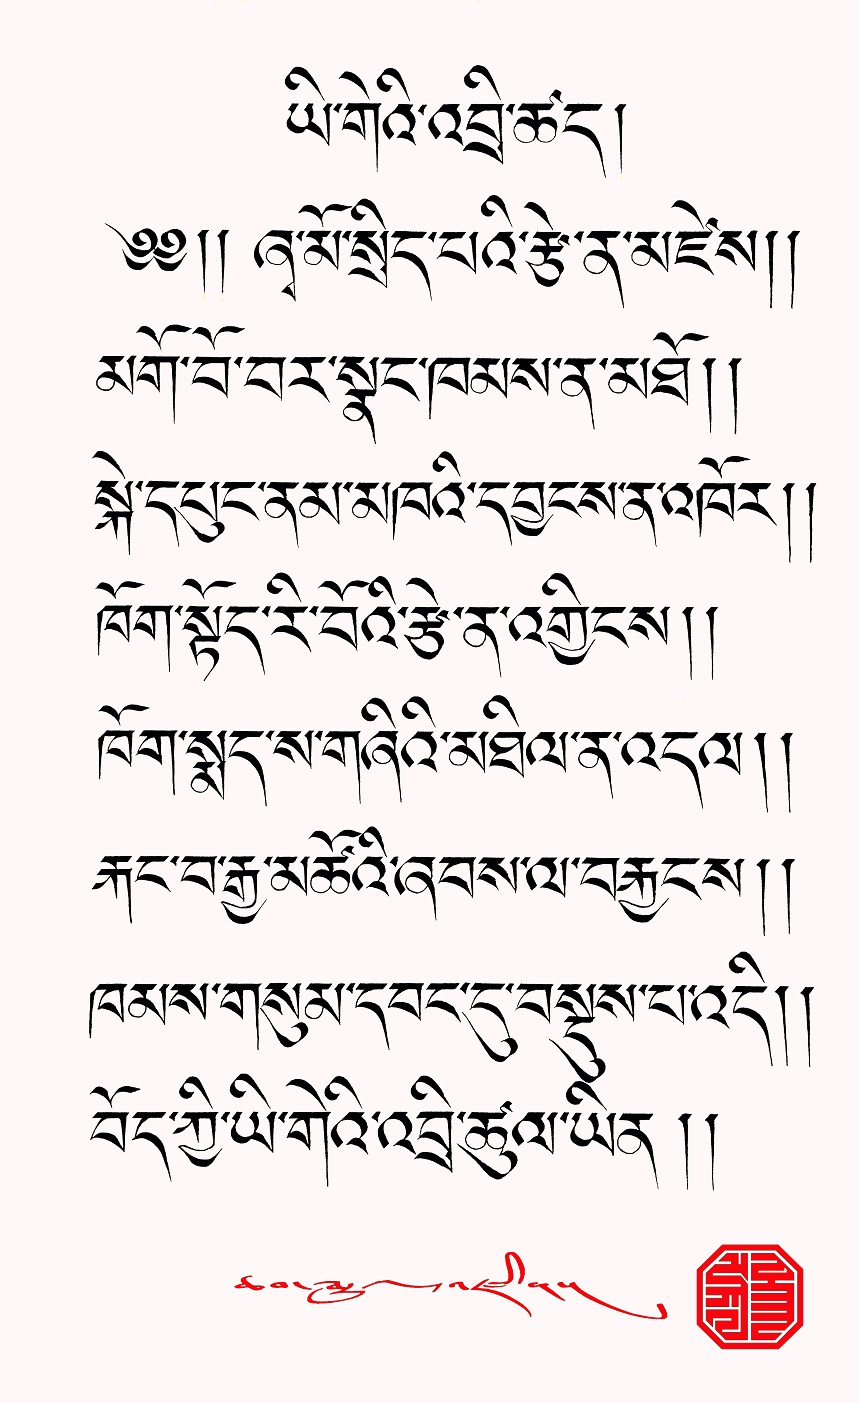 ཡི་གེའི་འབྲི་ཚད།
༄༅།། ཞྭ་མོ་སྲིད་པའི་རྩེ་ན་མཛེས།།
མགོ་བོ་བར་སྣང་ཁམས་ན་མཐོ།།
སྐེ་དཔུང་ནམ་མཁའི་དབྱངས་ན་འཁོར།།
ཁོག་སྟོད་རི་བོའི་རྩེ་ན་འགྱིངས།།
ཁོག་སྨད་ས་གཞིའི་མཐིལ་ན་འདལ།།
རྐང་བ་རྒྱ་མཚོའི་ཞབས་ལ་བརྐྱངས།།
ཁམས་གསུམ་དབང་དུ་བསྡུས་པ་འདི།།
བོད་ཀྱི་ཡི་གེའི་འབྲི་ཚུལ་ཡིན །།